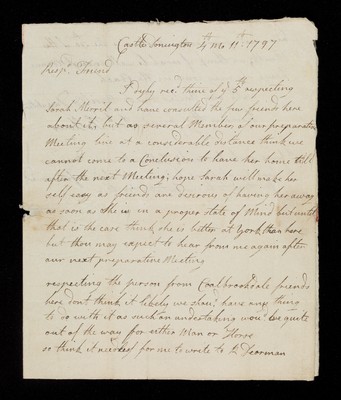 Castle Donington 4th Mo 11th 1797
Resp.d Friend
I duly recd thine of ye 5th respecting
Sarah Morril and have consulted the few friends here
about it, but as several Members of our preparative
Meeting live at a considerable distance think we
cannot come to a Conclusion to have her home till
after the next Meeting; hope Sarah will make her
self easy as friends are desirous of having her away
as soon as she is in a proper state of Mind but until
that is the case think she is better at York than here
but thou may expect to hear from me again after
our next preparative Meeting
respecting the person from Coalbrookdale friends
here dont think it likely we shou'd have any thing
to do with it as such an undertaking wou'd be quite
out of the way for either Man or Horse
so think it needless for me to write to Dearman